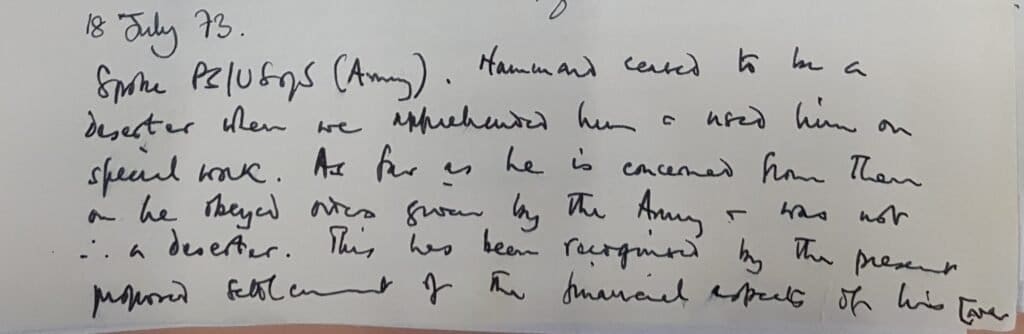 18 July 73.
Spoke PS/US of S (Army). Hammond ceased to be a
deserter when we apprehended him & used him on
special work. As far as he is concerned from then
on he obeyed orders given by the Army & was not
∴ a deserter. This has been recognised by the present
proposed settlement of the financial aspects of his